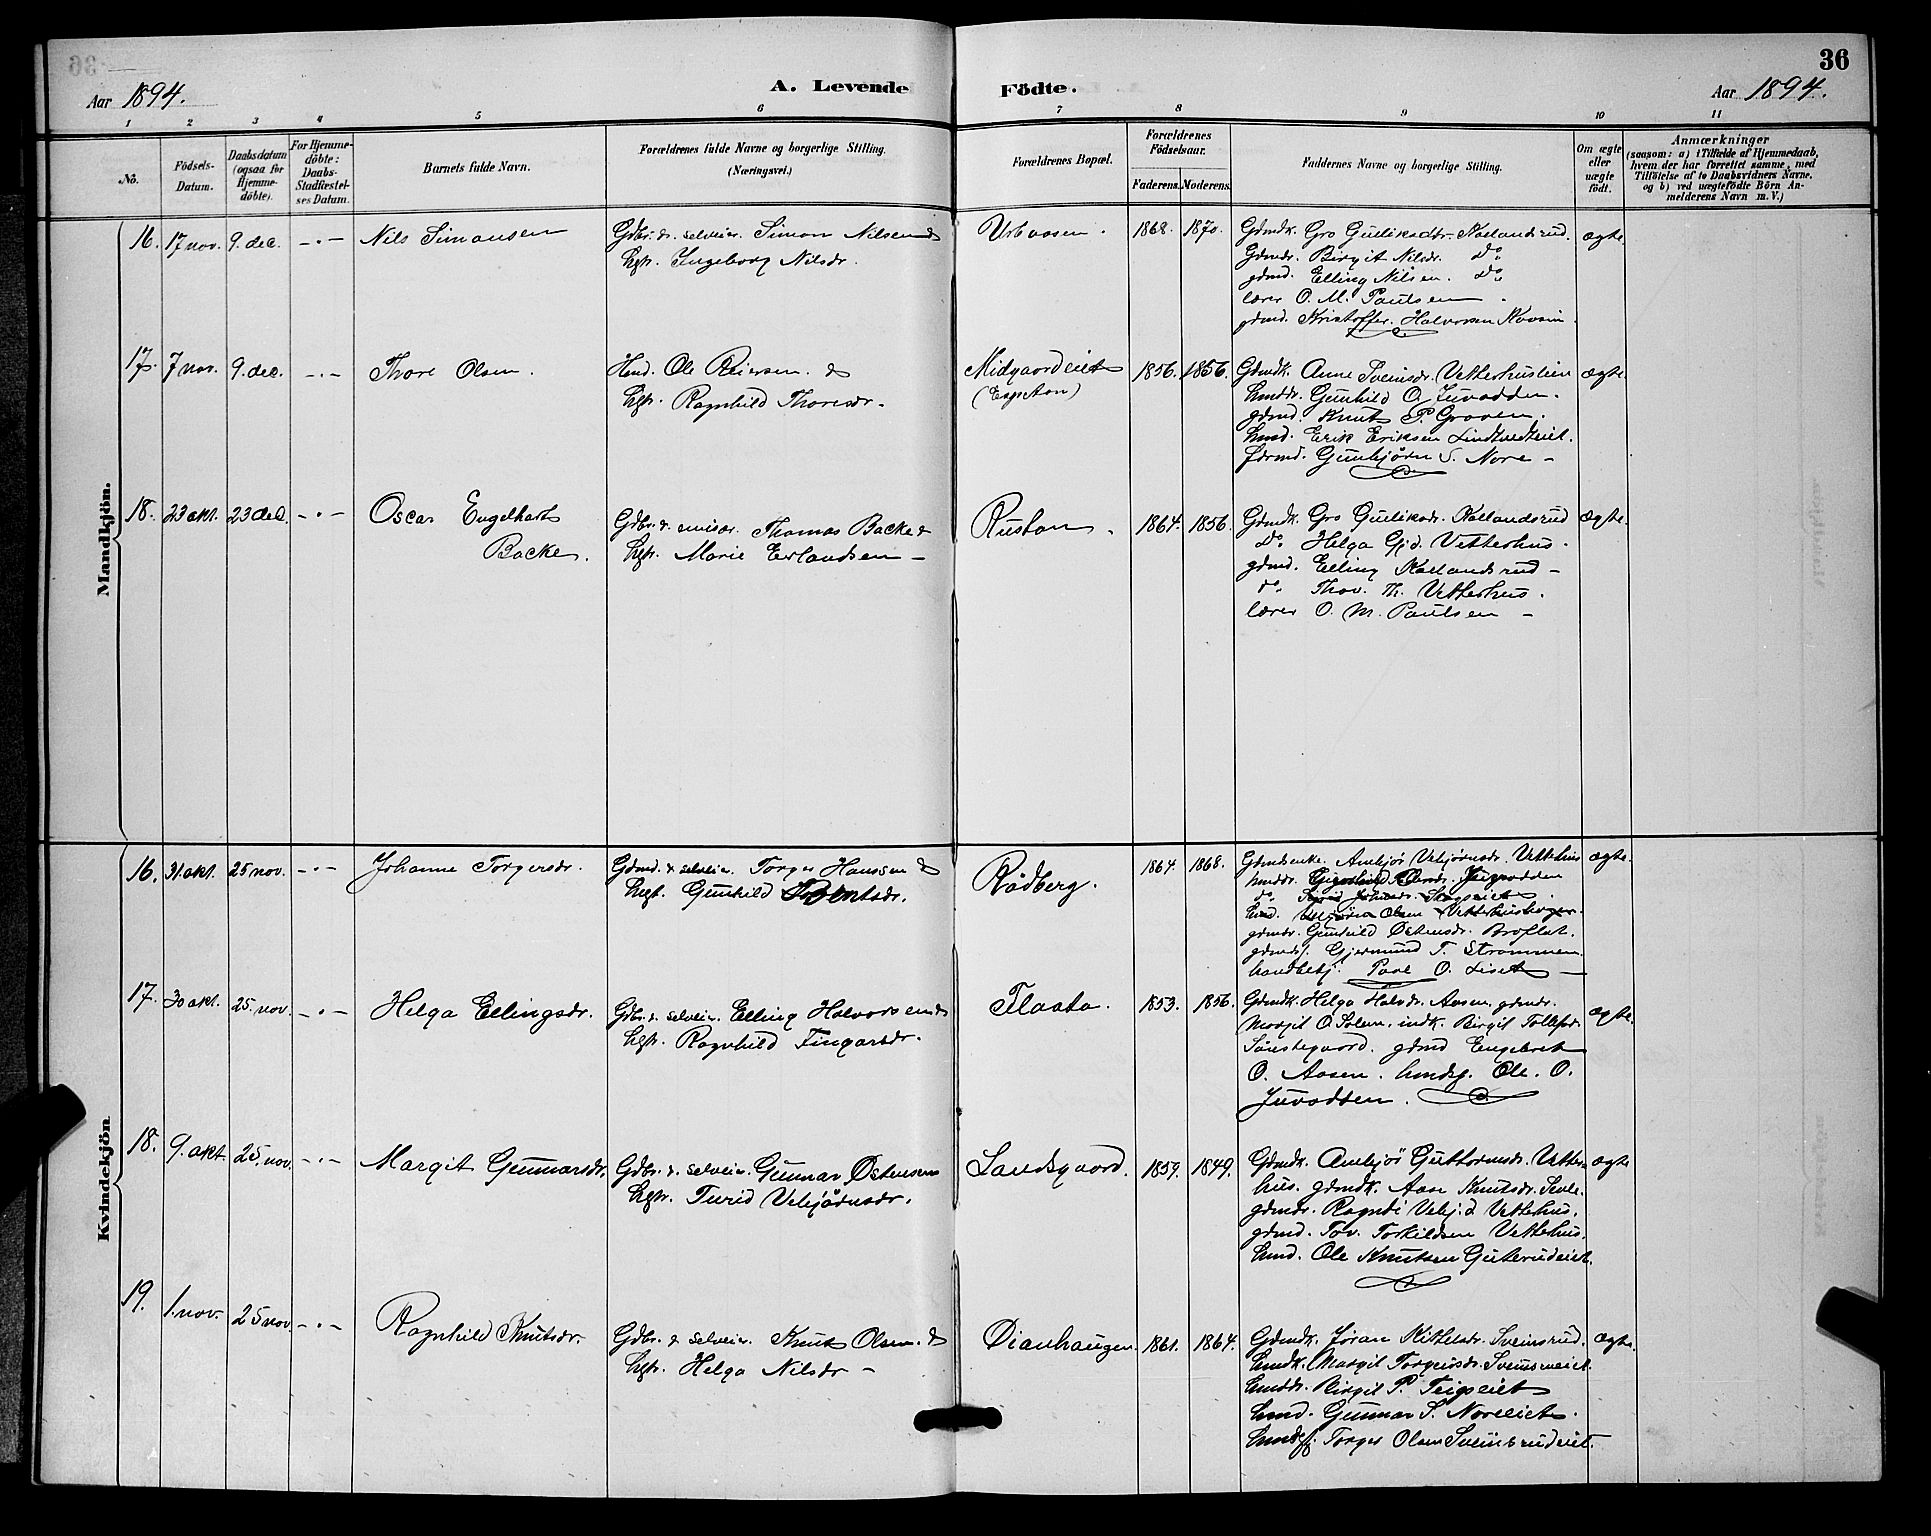 36
Aar 1894.
A. Levende Födte.
Aar 1894.
1 2 3 4 5 6 7 8 9 10 11
No.
Födsels-Datum.
Daabsdatum (ogsaa for Hjemme-döbte).
For Hjemme-döbte: Daabs-Stadfæstel-ses Datum.
Barnets fulde Navn.
Forældrenes fulde Navne og borgerlige Stilling.
(Næringsvei.)
Forældrenes Bopæl.
Forældrenes Födselsaar.
Faderens. Moderens.
Faddernes Navne og borgerlige Stilling.
Om ægte eller uægte födt.
Anmærkninger
(saasom: a) i Tilfælde af Hjemmedaab,
hvem der har forrettet samme, med
Tilföielse af to Daabsvidners Navne,
og b) ved uægtefödte Börn An-
melderens Navn m. V.)
Mandkjön.
16. 17 nov. 9. dec. -"- Nils Simonsen
Gdbr. & selveier. Simon Nilsen &
hstr. Ingeborg Nilsdr.
1868. 1870.
Gdmdk. Gro Guliksdtr. Kaalandsrud.
Gdmdr. Birgit Nilsdr. Do
gdmd. Elling Nilsen. Do
lærer O. M. Paulsen
gdmd. Kristoffer Halvorsen
ægte.
17. 7 nov. 9. dec. -"- Thore Olsen.
Hmd. Ole Reiersen &
hstr. Ragnhild Thoresdr.
Midgaardeiet
1856. 1856.
Gdmdk. Anne Sveinsdr.
hmddr. Gunhild O. Juvodden.
gdmd. Knut P. Groven.
hmd. Erik Eriksen Lindtvedteiet.
Gunbjørn S. Nore -
ægte.
18. 23 okt. 23 dec. -"- Oscar Engelhart
Backe.
Gdbr. & Thomas Backe &
hstr. Marie Erlandsen -
Rustan.
1864. 1856.
Gdmdk. Gro Guliksdr. Kaalandsrud
Do Helga Vetterhus.
gdmd. Elling Kaalandsrud -
do Thov. Th. Vetterhus.
lærer O. M. Paulsen -
ægte.
Kvindekjön
16. 31 okt. 25 nov. -"- Johanne Torgersdr.
Gdmd. & selveier Torger Hanssen &
hstr. Gunhild
Rødberg.
1864. 1868.
Vebjørnsdr. Vetterhus
hmddr.
do
hmd. Olsen
gdmdr. Gunhild Østensdr. Broflat.
Gjermund T. Strømmen.
Paul O. Liset -
ægte.
17. 30 okt. 25. nov. -"- Helga Ellingsdr.
Gdbr. & selveier. Elling Halvorsen &
hstr. Ragnhild Fingarsdr.
Flaata.
1853. 1856.
Gdmdk. Helga Halvdr. Aasen, gdmdr.
Margit O. Solem, indk. Birgit Tollefsdr.
gdmd Engebret
O. Aasen. Ole O.
Juvodden.
ægte.
18. 9. okt. 25. nov. -"- Margit Gunnarsdr.
Gdbr. & selveier. Gunnar Østensen
hstr. Turid Vebjørnsdr.
Landsgaard.
1859. 1849.
Gdmdk. Guttormsdr. Vetter-
hus. gdmdk. Aase Knutsdr.
gdmdr. Ragndi Vebj.d Vetterhus.
gdmd. Tov. Torkildsen Vetterhus.
hmd. Ole Knutsen Guterudeiet.
ægte
19. 1. nov. 25 nov. -"- Ragnhild Knutsdr.
Gdbr. & selveier. Knut Olsen &
hstr. Helga Nilsdr -
1861. 1864.
Gdmdk. Jøran Kittelsdr. Sveinsrud.
hmdk. Margit Torgersdr.
hmddr. Birgit P. Teigseiet
hmd. Gunnar S. Noreeiet.
Torger Olsen Sveinsrudeiet.
ægte.